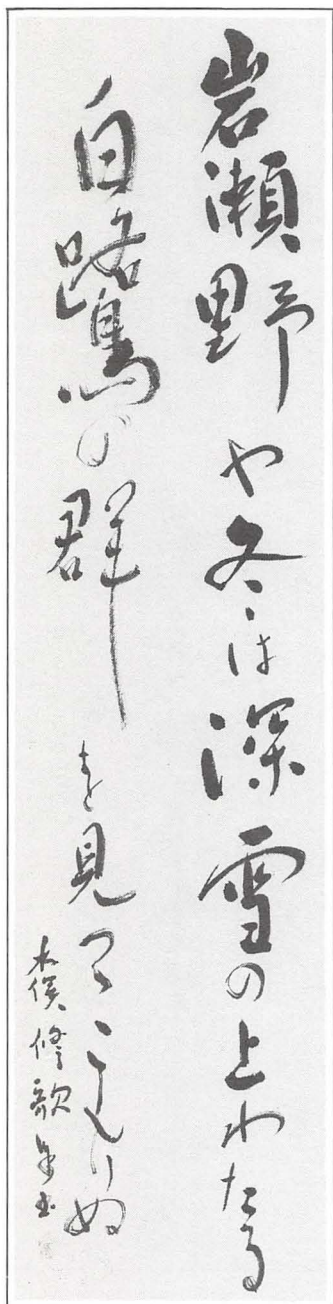 岩瀬野や冬は深雪の上わたる
白鷺の群を見つゝこもりぬ
木俣修歌